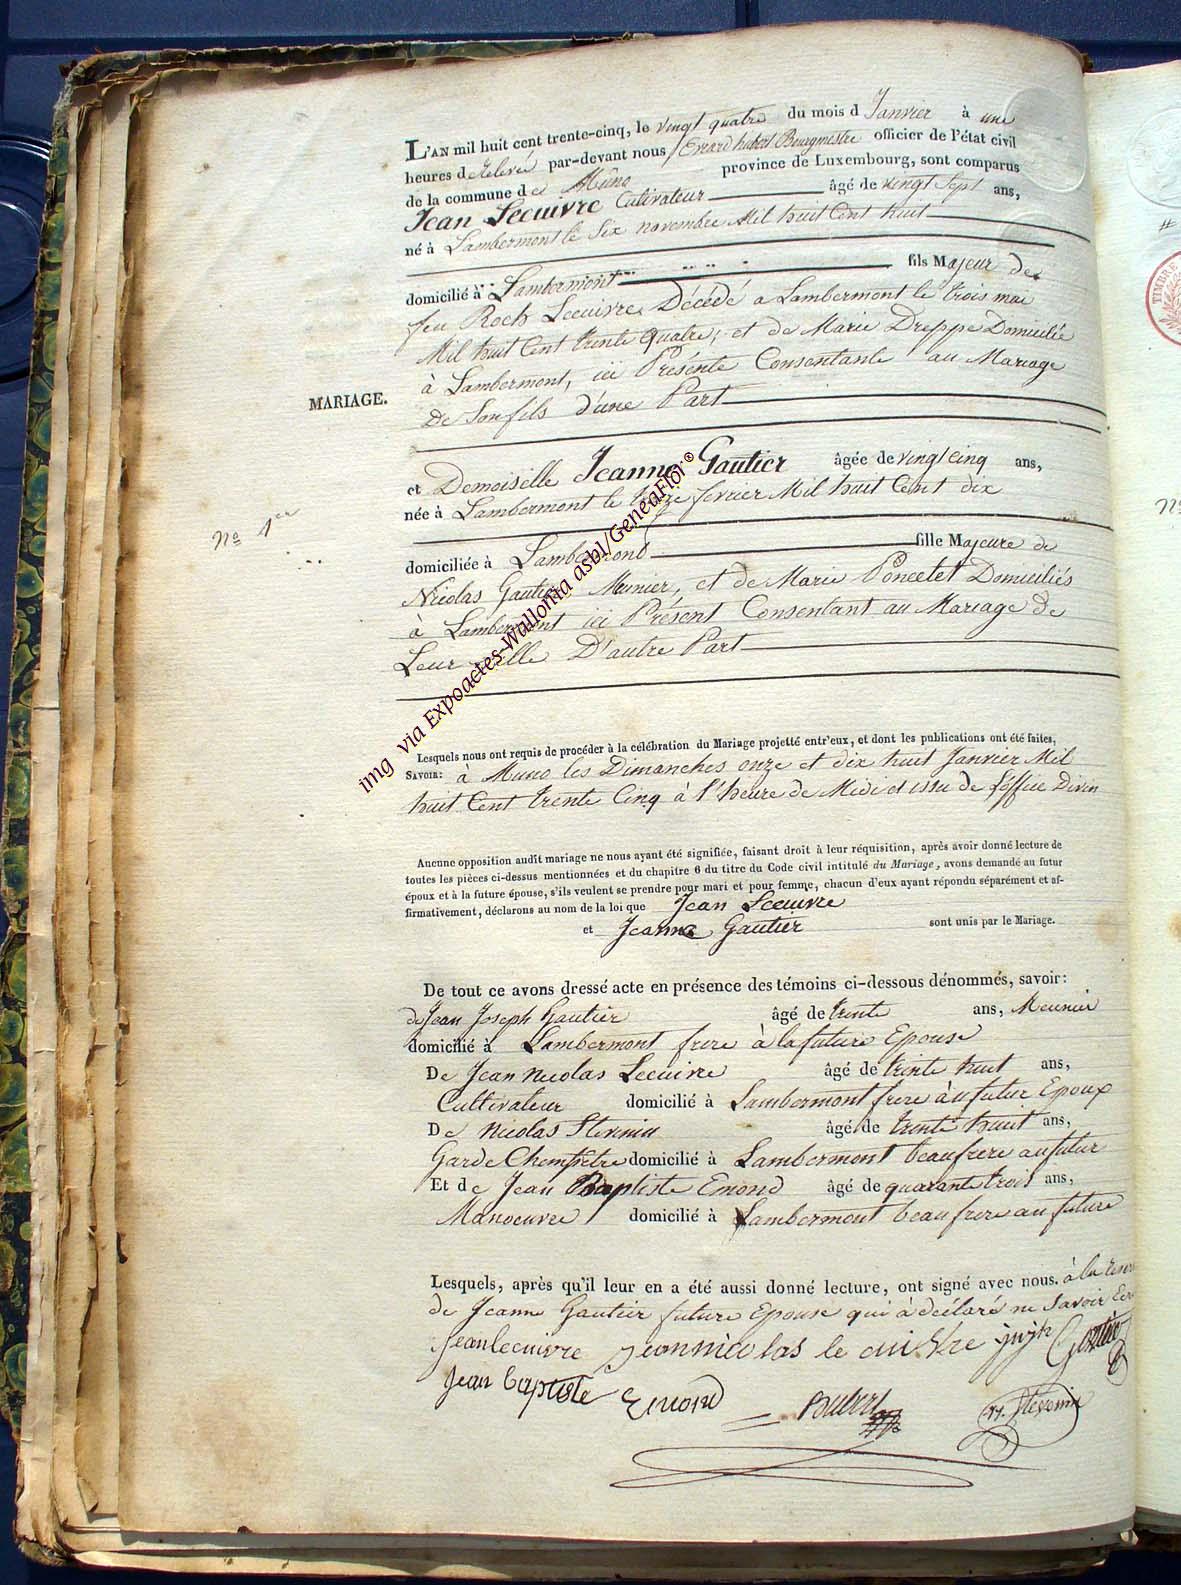 L'AN mil huit cent trente-cinq, le vingt quatre du mois d Janvier à une
heures de Relevé par-devant nous Evrard hubert Bourgmestre officier de l'état civil
de la commune de Muno province de Luxembourg, sont comparus
Jean Lecuivre Cultivateur âgé de vingt Sept ans,
né à Lambermont le Six novembre Mil huit Cent huit
domicilié à Lambermont fils Majeur de
feu Roch Lecuivre Décédé a Lambermont le trois mai
Mil huit Cent trente quatre, et de Marie Dreppe Domicilié
à Lambermont, ici Présente Consentante au Mariage
MARIAGE.
De Son fils d'une Part
et Demoiselle Jeanne Gautier âgée de vingt cinq ans,
née à Lambermont le fevrier Mil huit Cent dix
No 1er
domiciliée à Lambermond fille Majeure de
Nicolas Gautier Meunier, et de Marie Poncelet Domiciliés
à Lambermont ici Présent Consentant au Mariage de
Leur fille D'autre Part
Lesquels nous ont requis de procéder à la célébration du Mariage projetté entr'eux, et dont les publications ont été faites,
SAVOIR: à Muno les Dimanches onze et dix huit Janvier Mil
huit Cent trente Cinq à l'heure de Midi et issu de l'office Divin
Aucune opposition audit mariage ne nous ayant été signifiée, faisant droit à leur réquisition, après avoir donné lecture de
toutes les pièces ci-dessus mentionnées et du chapitre 6 du titre du Code civil intitulé du Mariage, avons demandé au futur
époux et à la future épouse, s'ils veulent se prendre pour mari et pour femme, chacun d'eux ayant répondu séparément et af-
firmativement, déclarons au nom de la loi que Jean Lecuivre
et Jeanne Gautier sont unis par le Mariage.
De tout ce avons dressé acte en présence des témoins ci-dessous dénommés, savoir:
de Jean Joseph Gautier âgé de trente ans, Meunier
domicilié à Lambermont frere à la future Epouse
De Jean nicolas Lecuivre âgé de trente huit ans,
Cultivateur domicilié à Lambermont frere àu futur Epoux
De Nicolas Stevenin âgé de trente huit ans,
Garde Champêtre domicilié à Lambermont beaufrere au futur
Et de Jean Baptiste Emond âgé de quarante trois ans,
Manoeuvre domicilié à Lambermont beaufrere au future
Lesquels, après qu'il leur en a été aussi donné lecture, ont signé avec nous. à la
de Jeanne Gautier future Epouse qui à déclaré ne Savoir
Jean lecuivre Jean nicolas le cuivre Gautier
Jean baptiste Emond hubert N. Stevenin
img via Expoactes-Wallonia asbl/GeneaFlor ©
TIMBRE
No